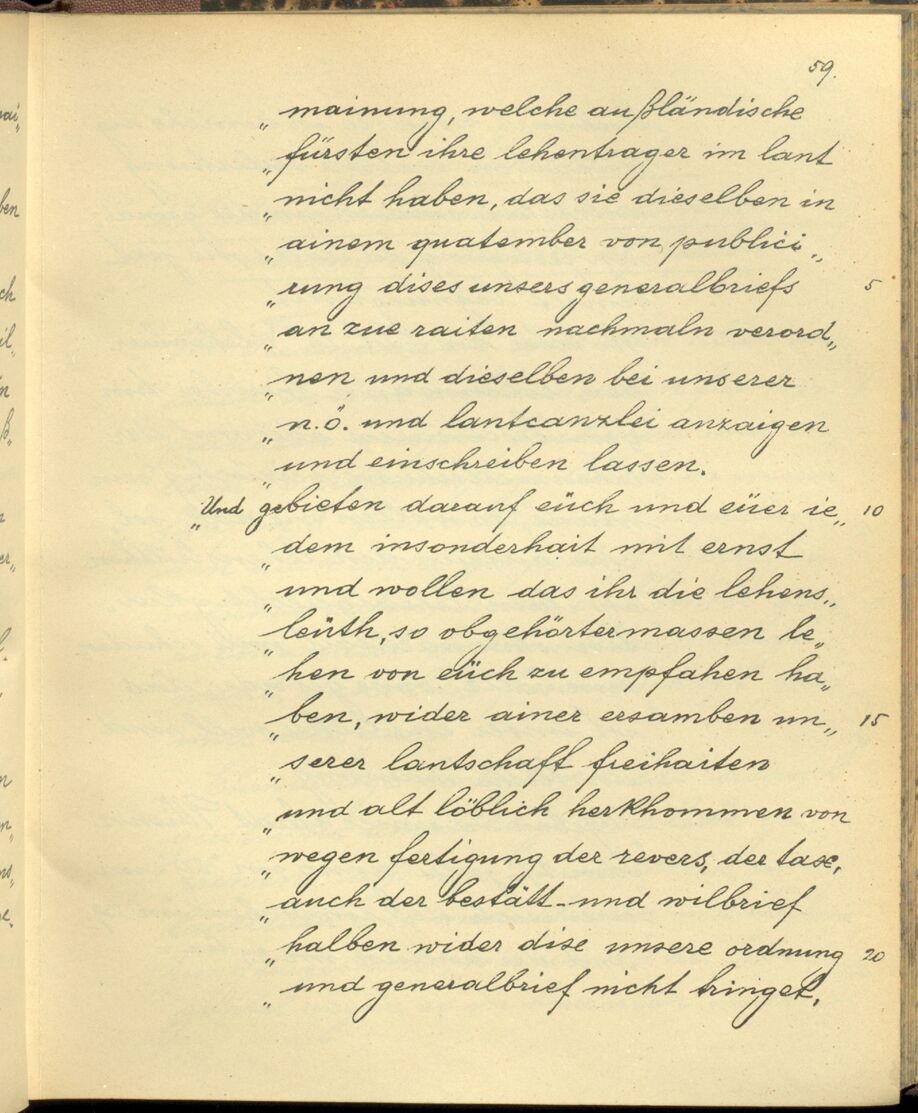 59.
„ mainung, welche außländische
„ fürsten ihre lehentrager im lant
„ nicht haben, das sie dieselben in
„ ainem quatember von publici„
„ rung dises unsers generalbriefs 5
„ an zue raiten nachmaln verord„
„ nen und dieselben bei unserer
„ n.ö. und lantcanzlei anzaigen
„ und einschreiben lassen.
„ Und gebieten darauf eüch und eüer ie„ 10
„ dem insonderhait mit ernst
„ und wollen das ihr die lehens„
„ leüth, so obgehörtermassen le„
„ hen von eüch zu empfahen ha„
„ ben, wider ainer ersamben un„ 15
„ serer lantschaft freihaiten
„ und alt löblich herkhommen von
„ wegen fertigung der revers, der tax,
„ auch der bestätt- und wilbrief
„ halben wider dise unsere ordnung 20
„ und generalbrief nicht tringet,